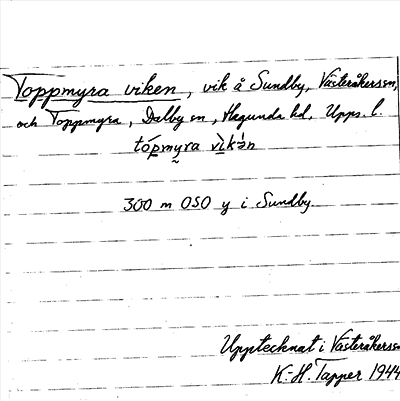 Toppmyra viken, vik å Sundby, Västeråkers sn,
och Toppmyra, Dalby sn, Hagunda hd, Upps. l.
tópmyra vìkə́n
300 m OSO y i Sundby.
Upptecknat i Västeråkers sn
K.-H. Tapper 1944